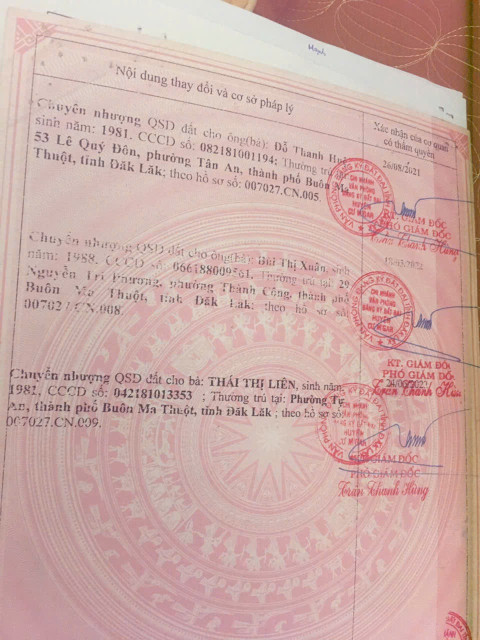 Nội dung thay đổi và cơ sở pháp lý
Xác nhận của cơ quan
có thẩm quyền
Chuyển nhượng QSD đất cho ông(bà): Đỗ Thanh
sinh năm: 1981, CCCD số: 082181001194; Thường trú tại
53 Lê Quý Đôn, phường Tân An, thành phố Buôn Ma
Thuột, tỉnh Đăk Lăk; theo hồ sơ số: 007027.CN.005.
26/08/2021
KT. GIÁM ĐỐC
PHÓ GIÁM ĐỐC
Trần Chanh Hùng
Chuyển nhượng QSD đất cho ông(bà): Bùi Thị Xuân, sinh
năm: 1988, CCCD số: 066188009561, Thường trú tại 29
Nguyễn Tri Phương, phường Thành Công, thành phố
Buôn Ma Thuột, tỉnh Đăk Lăk; theo hồ sơ số
.CN.008.
KT. GIÁM ĐỐC
PHÓ GIÁM ĐỐC
Trần Chanh
Chuyển nhượng QSD đất cho bà: THÁI THỊ LIÊN, sinh năm:
1981, CCCD số: 042181013353 ; Thường trú tại: Phường Tự
An, thành phố Buôn Ma Thuột, tỉnh Đăk Lăk ; theo hồ sơ số
007027.CN.009.
GIÁM ĐỐC
PHÓ GIÁM ĐỐC
Trần Chanh Hùng
CHI NHÁNH
VĂN PHÒNG
ĐĂNG KÝ ĐẤT ĐAI
HUYỆN
CƯ M'GAR